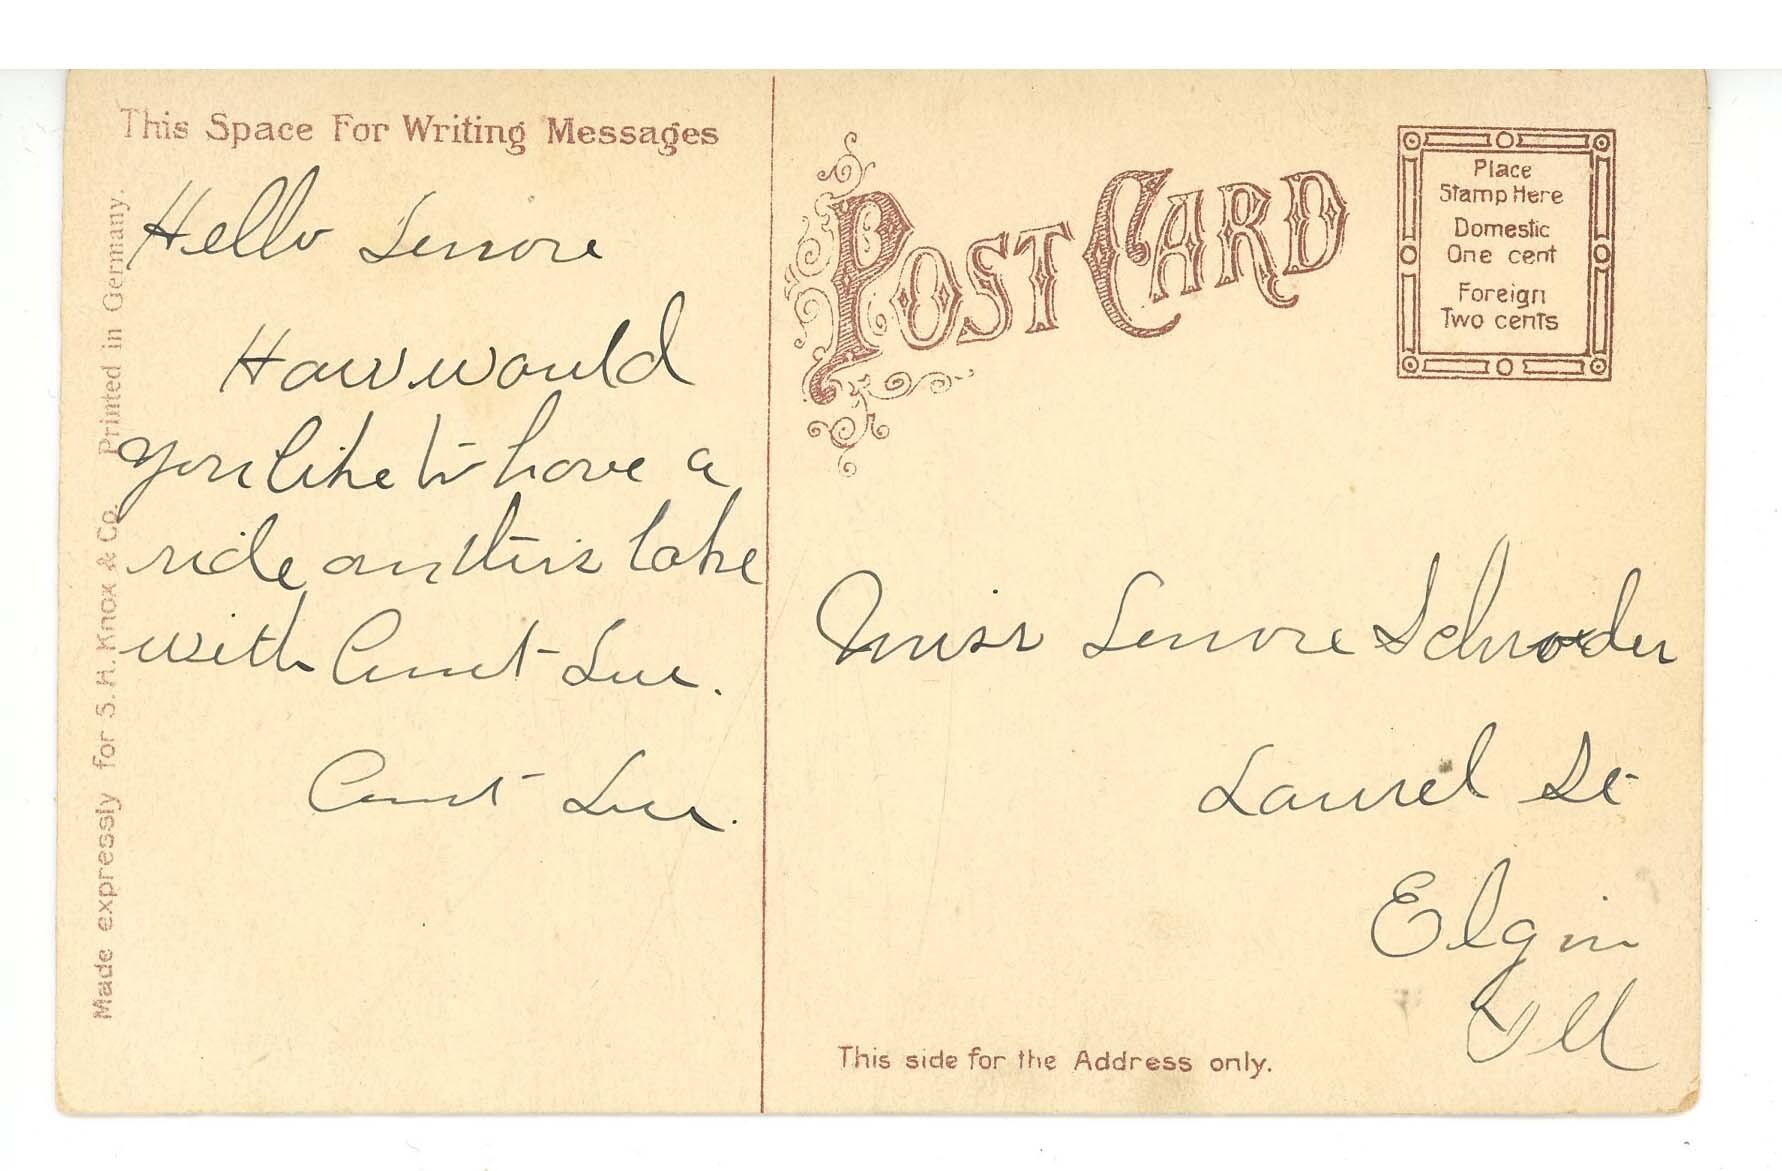 This Space For Writing Messages
Hello Lenore
How would
you like to have a
ride on this lake
with Aunt Lue.
Aunt Lue.
Made expressly for S. H. Knox & Co. Printed in Germany.
POST CARD
Place
Stamp Here
Domestic
One cent
Foreign
Two cents
Miss Lenore Schroder
Laurel St
Elgin
Ill
This side for the Address only.